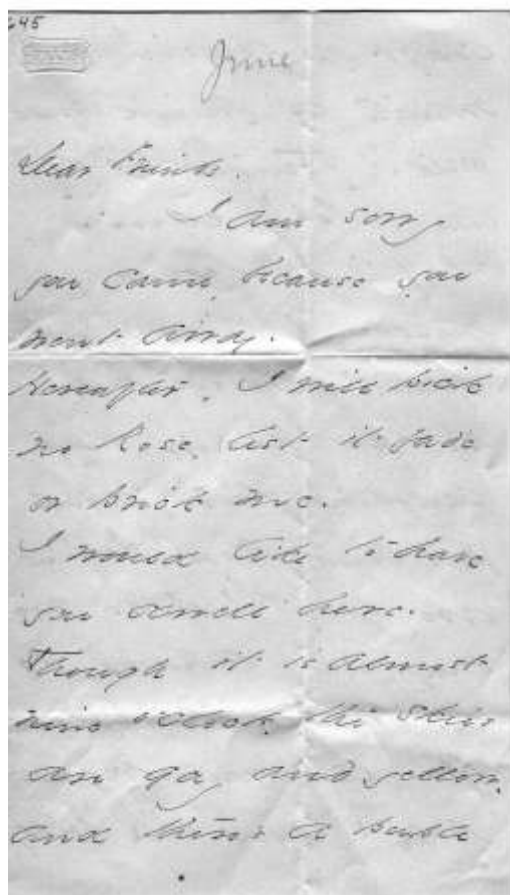 645
June
Dear Friends.
I am sorry
you came, because you
went away.
Hereafter, I will pick
no Rose, lest it fade
or prick me.
I would like to have
you dwell here.
Though it is almost
nine o'clock, the skies
are gay and yellow,
and there's a purple